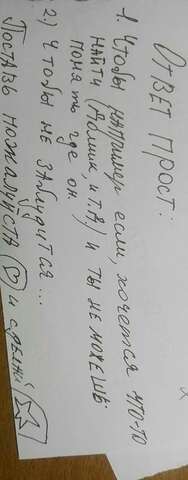 ОТВЕТ ПРОСТ:
1. Чтобы например если, хочется что-то
найти (Домик, и т.д.) и ты не можешь
понять где он
2) Чтобы не заблудится...
Поставь пожалуйста и сделки